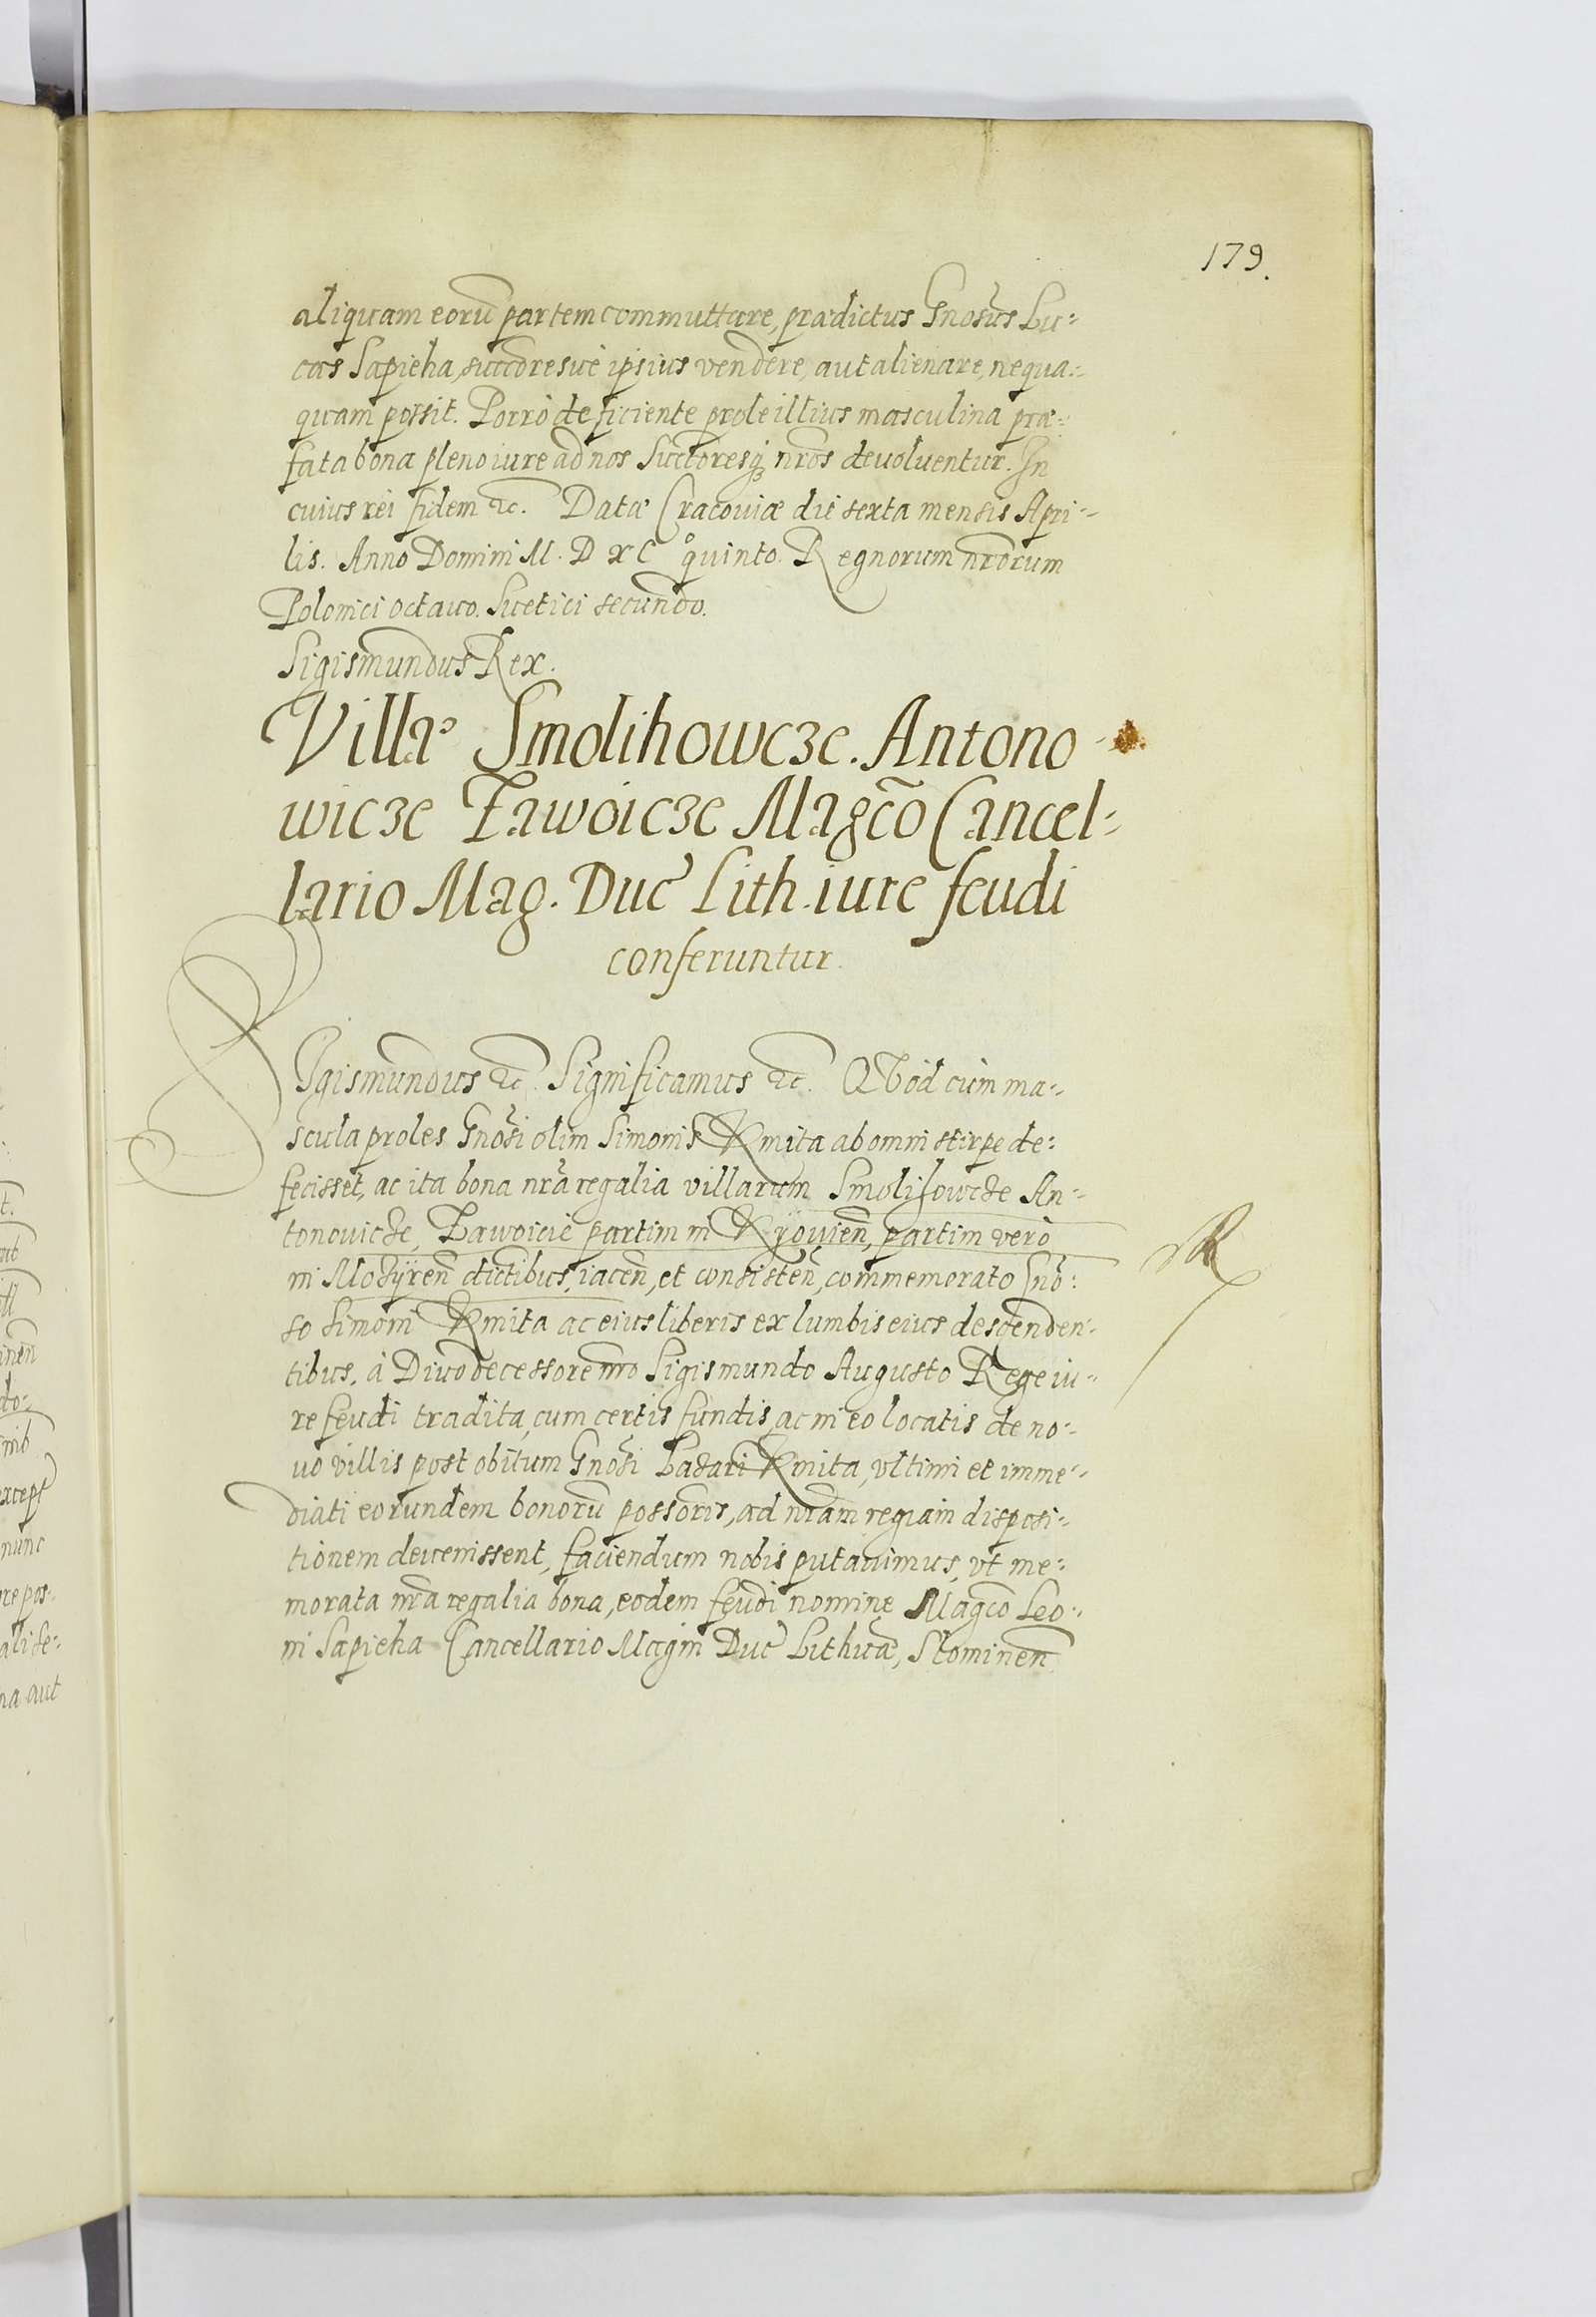 179.
aliquam eorũ partem commuttare, prædictus Gnosus Lu-
cas Sapieha, succoresue ipsius vendere, aut alienare, nequa-
quam possit. Porrò deficiente prole illius masculina præ-
fata bona pleno iure ad nos Succoresq; nros deuoluentur. In
cuius rei fidem &c. Datæ Cracouiæ die sexta mensis Apri-
lis. Anno Domini M. D XC quinto. Regnorum nrorum
Polonici octauo. Suetici secundo.
Sigismundus Rex.
Villæ Smolihowcze. Antono-
wicze Zawoicze Magco Cancel-
lario Mag. Duc Lith. iure feudi
conferuntur.
SIgismundus &c. Significamus &c. QVod cùm ma-
scula proles Gnosi olim Simonis Kmita ab omni stirpe de-
fecisset, ac ita bona nra regalia villarum Smolihowcze An-
tonouicze, Zawoicie partim in Kÿouien, partim verò
in Mozÿren dictibus, iacen, et consisten, commemorato Gno-
so Simoni Kmita ac eius liberis ex lumbis eius descenden-
tibus, à Diuo decessore nro Sigismundo Augusto Rege iu-
re feudi tradita, cum certis fundis, ac in eo locatis de no-
uo villis post obitum Gnosi Lazari Kmita, vltimi et imme-
diati eorundem bonorũ possoris, ad nram regiam disposi-
tionem deuenissent, faciendum nobis putauimus, vt me-
morata nra regalia bona, eodem feudi nomine Magco Leo-
ni Sapieha Cancellario Magni Duc Lithuæ, Slominen
t.
do-
inen
except
nunc
re pos-
na aut